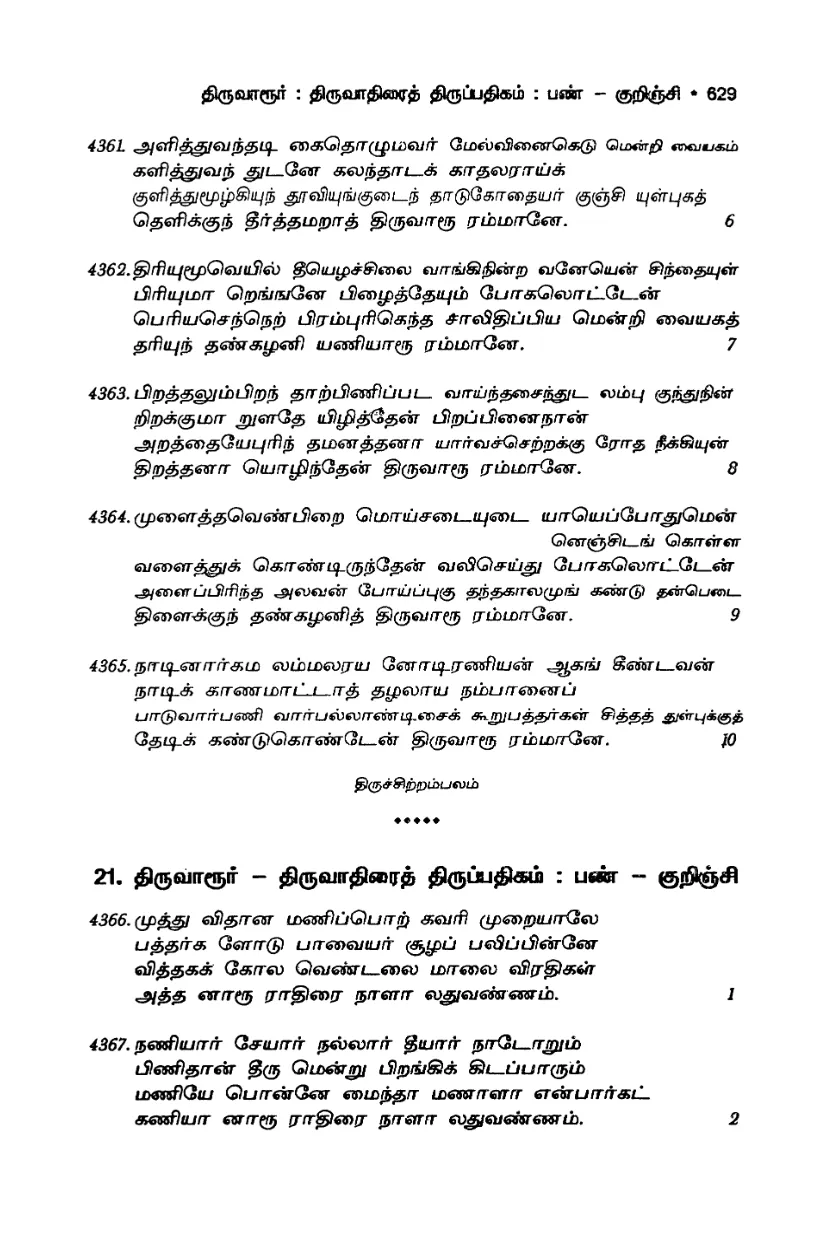 திருவாரூர் : திருவாதிரைத் திருப்பதிகம் : பண் – குறிஞ்சி • 629
4361. அளித்துவந்தடி கைதொழுமவர் மேல்வினைகெடு மென்றி வையகம்
களித்துவந் துடனே கலந்தாடக் காதலராய்க்
குளித்துமூழ்கியுந் தூவியுங்குடைந் தாடுகோதையர் குஞ்சி யுள்புகத்
தெளிக்குந் தீர்த்தமறாத் திருவாரூ ரம்மானே. 6
4362. திரியுமூவெயில் தீயெழச்சிலை வாங்கிநின்ற வனேயென் சிந்தையுள்
பிரியுமா றெங்ஙனே பிழைத்தேயும் போகலொட்டேன்
பெரியசெந்நெற் பிரம்புரிகெந்த சாலிதிப்பிய மென்றி வையகத்
தரியுந் தண்கழனி யணியாரூ ரம்மானே. 7
4363. பிறத்தலும்பிறந் தாற்பிணிப்பட வாய்ந்தசைந்துட லம்பு குந்துநின்
றிறக்குமா றுளதே யிழித்தேன் பிறப்பினைநான்
அறத்தையேபுரிந் தமனத்தனா யார்வச்செற்றக்கு ரோத நீக்கியுன்
திறத்தனா யொழிந்தேன் திருவாரூ ரம்மானே. 8
4364. முளைத்தவெண்பிறை மொய்சடையுடை யாயெப்போதுமென்
னெஞ்சிடங் கொள்ள
வளைத்துக் கொண்டிருந்தேன் வலிசெய்து போகலொட்டேன்
அளைப்பிரிந்த அலவன் போய்ப்புகு தந்தகாலமுங் கண்டு தன்பெடை
திளைக்குந் தண்கழனித் திருவாரூ ரம்மானே. 9
4365. நாடினார்கம லம்மலரய னோடிரணியன் ஆகங் கீண்டவன்
நாடிக் காணமாட்டாத் தழலாய நம்பானைப்
பாடுவார்பணி வார்பல்லாண்டிசைக் கூறுபத்தர்கள் சித்தத் துள்புக்குத்
தேடிக் கண்டுகொண்டேன் திருவாரூ ரம்மானே. 10
திருச்சிற்றம்பலம்
21. திருவாரூர் – திருவாதிரைத் திருப்பதிகம் : பண் – குறிஞ்சி
4366. முத்து விதான மணிப்பொற் கவரி முறையாலே
பத்தர்க ளோடு பாவையர் சூழப் பலிப்பின்னே
வித்தகக் கோல வெண்டலை மாலை விரதிகள்
அத்த னாரூ ராதிரை நாளா லதுவண்ணம். 1
4367. நணியார் சேயார் நல்லார் தீயார் நாடோறும்
பிணிதான் தீரு மென்று பிறங்கிக் கிடப்பாரும்
மணியே பொன்னே மைந்தா மணாளா என்பார்கட்
கணியா னாரூ ராதிரை நாளா லதுவண்ணம். 2